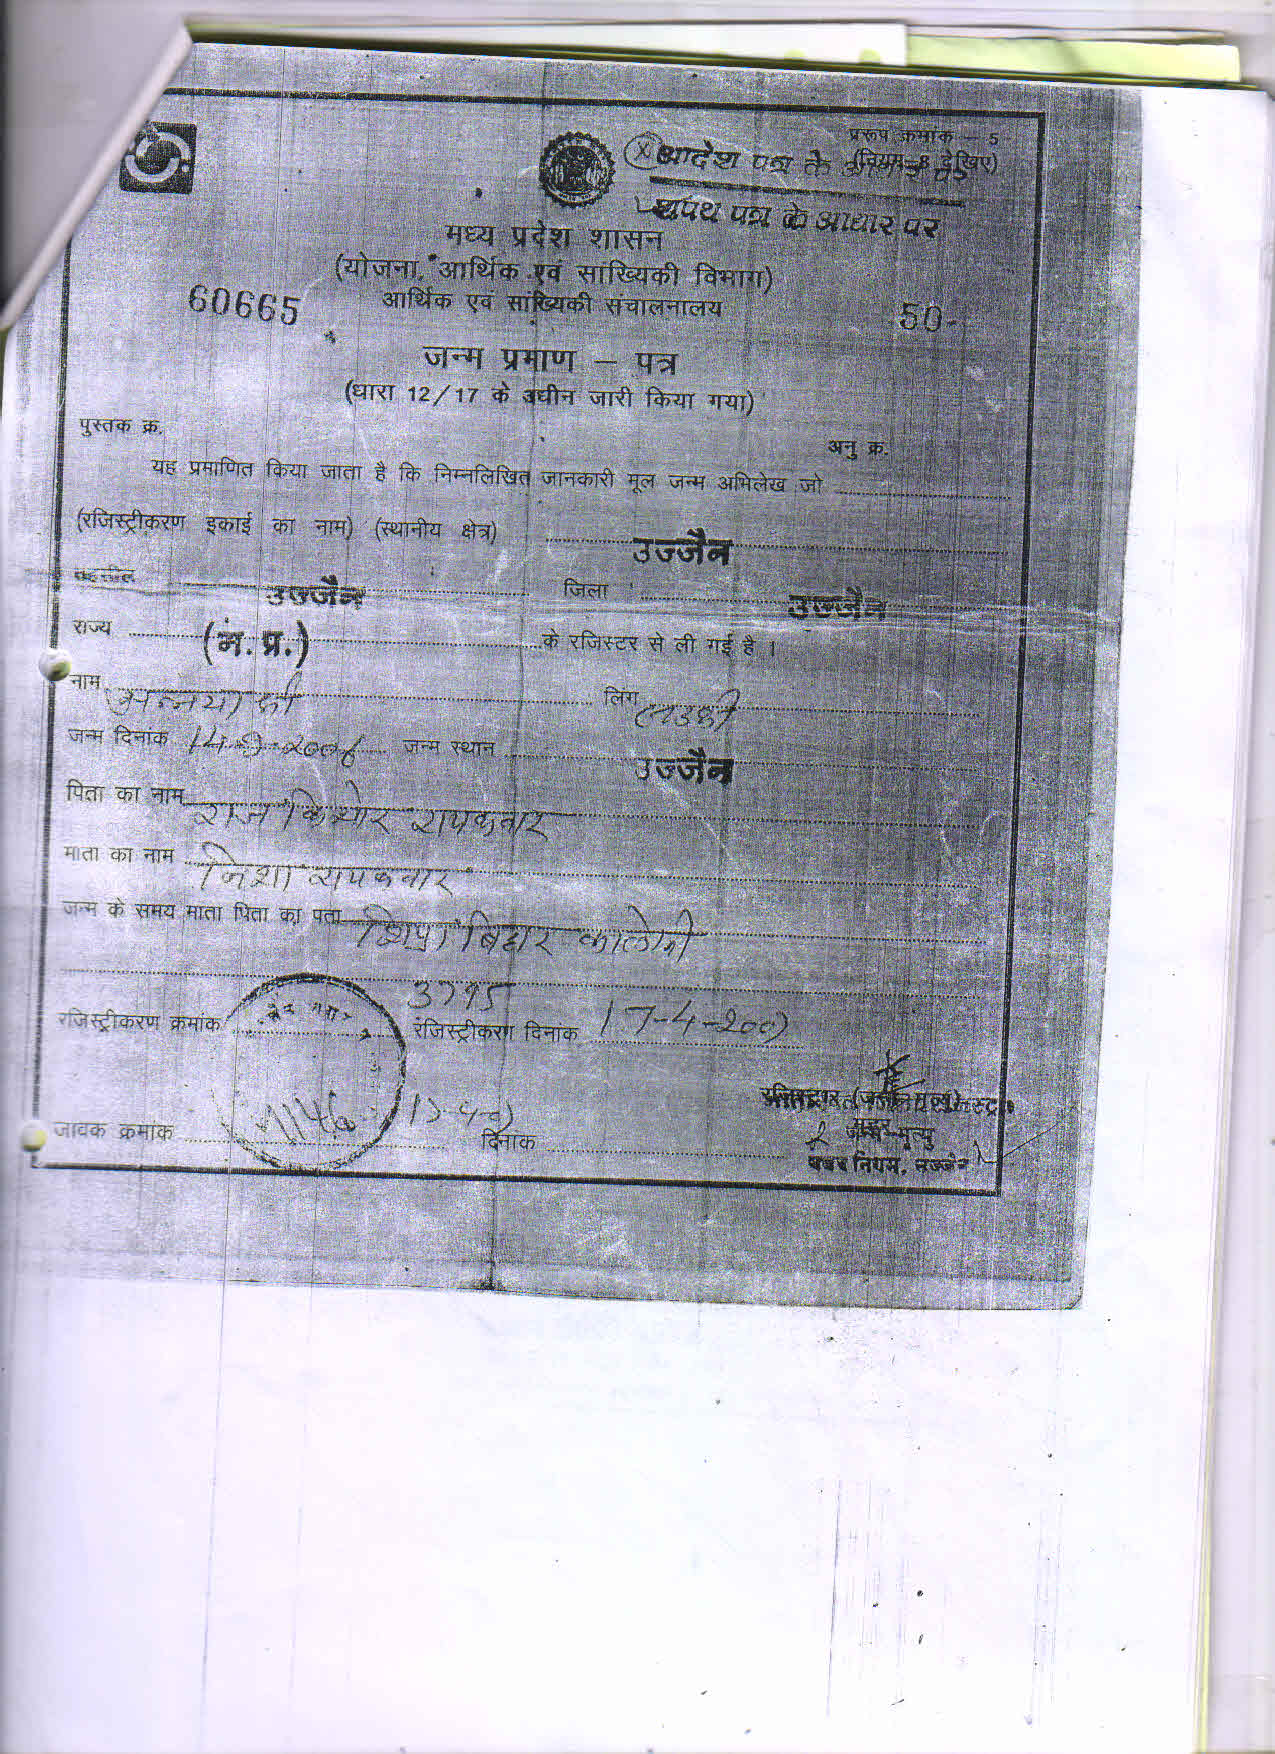 प्ररूप क्रमांक – 5
(नियम-8 देखिए)
आदेश पत्र के
शपथ पत्र के आधार पर
मध्य प्रदेश शासन
(योजना, आर्थिक एवं सांख्यिकी विभाग)
60665 आर्थिक एवं सांख्यिकी संचालनालय 50-
जन्म प्रमाण – पत्र
(धारा 12/17 के अधीन जारी किया गया)
पुस्तक क्र. अनु क्र.
यह प्रमाणित किया जाता है कि निम्नलिखित जानकारी मूल जन्म अभिलेख जो
(रजिस्ट्रीकरण इकाई का नाम) (स्थानीय क्षेत्र) उज्जैन
तहसील उज्जैन जिला उज्जैन
राज्य (म.प्र.) के रजिस्टर से ली गई है ।
नाम लिंग लडकी
जन्म दिनांक जन्म स्थान उज्जैन
पिता का नाम राज किशोर रायकवार
माता का नाम निशा रायकवार
जन्म के समय माता पिता का पता शिप्रा बिहार कालोनी
रजिस्ट्रीकरण क्रमांक रजिस्ट्रीकरण दिनांक 17-4-2007
जावक क्रमांक दिनांक
जन्म-मृत्यु
नगर निगम, उज्जैन